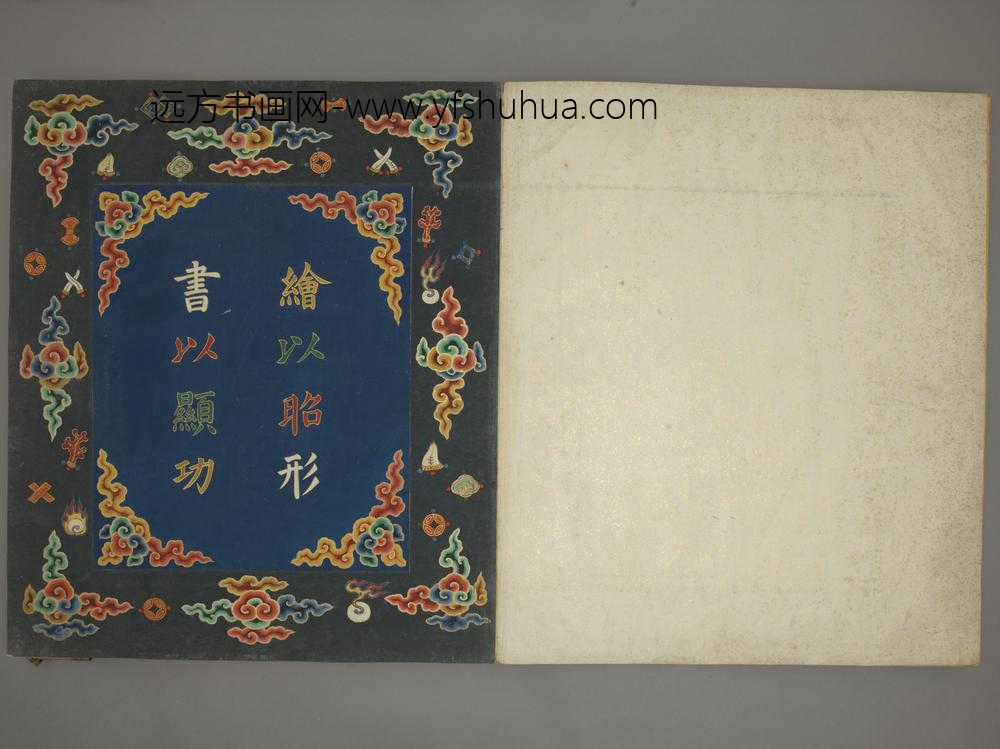 远方书画网-www.yfshuhua.com
繪以昭形
書以顯功